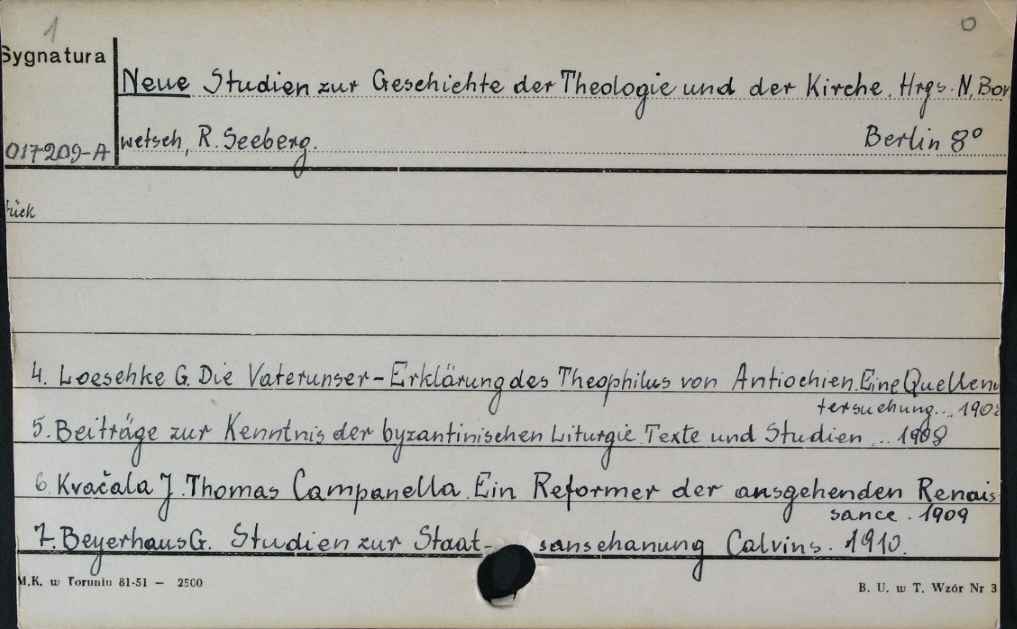 1 0
Sygnatura
Neue Studien zur Geschichte der Theologie und der Kirche. Hrgs. N. Bon
wetsch, R. Seeberg. Berlin 8°
017209-A
tück
4. Loeschke G. Die Vaterunser-Erklärung des Theophilus von Antiochien. Eine Quellenu
tersuchung... 1908
5. Beiträge zur Kenntnis der byzantinischen Liturgie. Texte und Studien ... 1908
6. Kvačala J. Thomas Campanella. Ein Reformer der ausgehenden Renais
sance. 1909
7. Beyerhaus G. Studien zur Staat- sanschanung Calvins. 1910.
M.K. w Toruniu 81-51 — 2500
B. U. w T. Wzór Nr 3